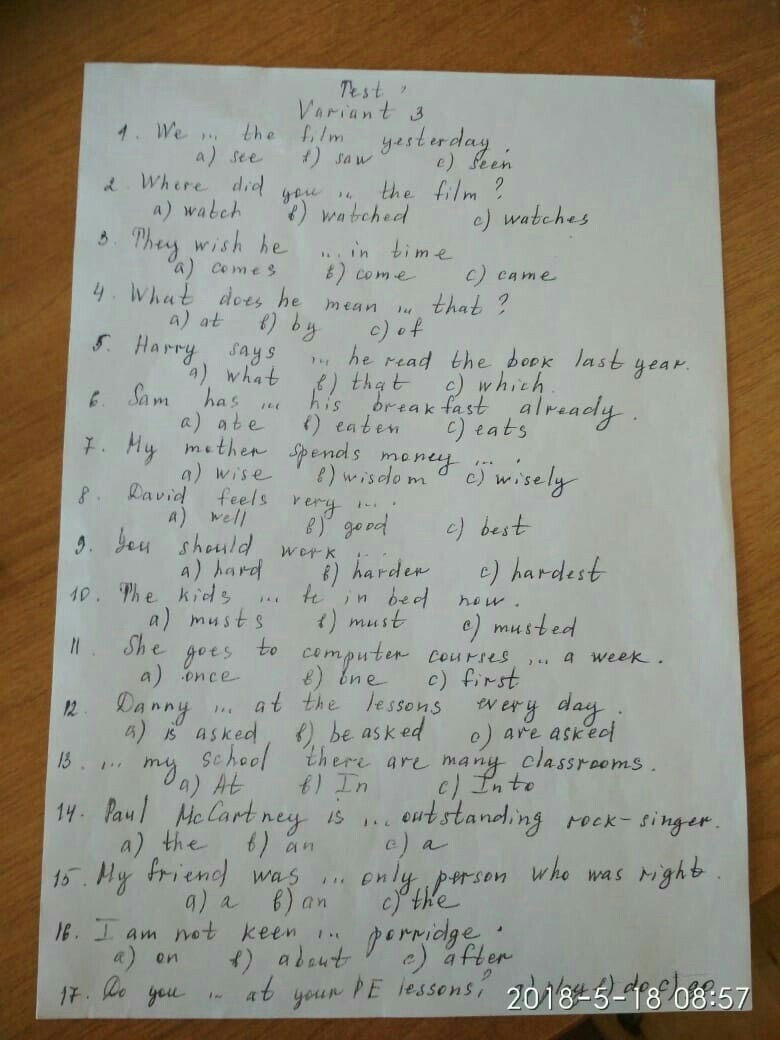 Test
Variant 3
1. We ... the film yesterday.
a) see b) saw c) seen
2. Where did you ... the film?
a) watch b) watched c) watches
3. They wish he ... in time
a) comes b) come c) came
4. What does he mean ... that?
a) at b) by c) of
5. Harry says ... he read the book last year.
a) what b) that c) which.
6. Sam has ... his breakfast already.
a) ate b) eaten c) eats
7. My mother spends money ... .
a) wise b) wisdom c) wisely
8. David feels very ... .
a) well b) good c) best
9. You should work ...
a) hard b) harder c) hardest
10. The kids ... be in bed now.
a) musts b) must c) musted
11. She goes to computer courses ... a week.
a) once b) one c) first
12. Danny ... at the lessons every day.
a) is asked b) be asked c) are asked
13. ... my school there are many classrooms.
a) At b) In c) Into
14. Paul McCartney is ... outstanding rock-singer.
a) the b) an c) a
15. My friend was ... only person who was right.
a) a b) an c) the
16. I am not keen ... porridge.
a) on b) about c) after
17. Do you ... at your PE lessons? a) play b) do c) go
2018-5-18 08:57